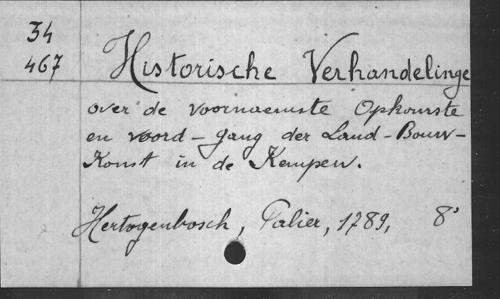 34
467
Historische Verhandelinge
over de voornaemste Opkomste
en voord-gang der Land-Bouw-
Konst in de Kempen.
Hertogenbosch, Palier, 1789, 8°